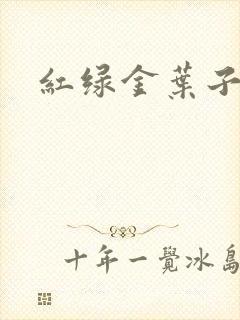 紅绿金葉子
十年一覺冰島